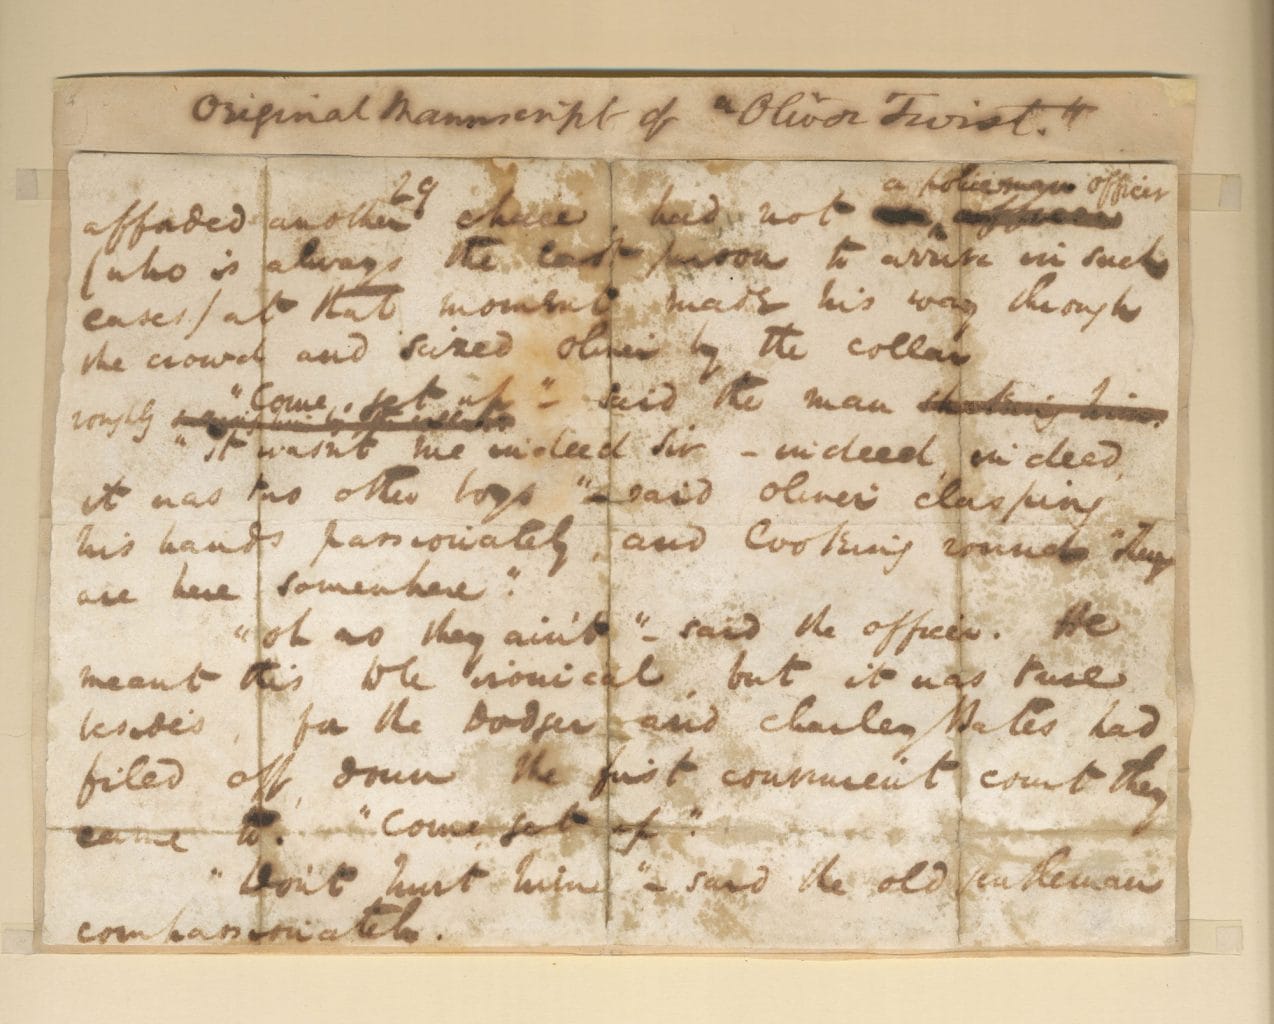 Original Manuscript of "Oliver Twist."
29
a policeman officer
afforded another chace, had not an officer
(who is always the last person to arrive in such
cases) at that moment made his way through
the crowd and seized Oliver by the collar
"Come, get up" – said the man shaking him.
roughly
"It wasn't me indeed sir – indeed, indeed,
it was two other boys" – said Oliver clasping
his hands passionately, and looking round "they
are here somewhere".
"Oh no they ain't" – said the officer. He
meant this to be ironical, but it was true
besides, for the Dodger and Charley Bates had
filed off, down the first convenient court they
came to. "Come, get up".
"Don't hurt him" – said the old gentleman
compassionately.